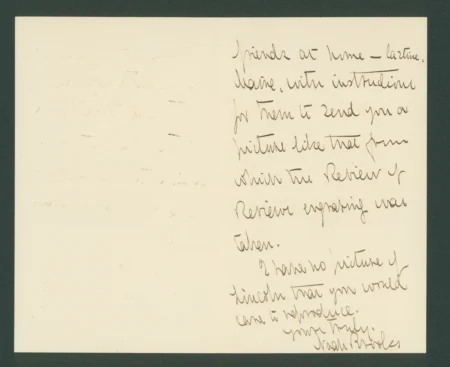 friends at home — Castine,
Maine, with instructions
for them to send you a
picture like that from
which the Review of
Reviews engraving was
taken.
I have no picture of
Lincoln that you would
care to reproduce.
Yours truly,
Noah Brooks